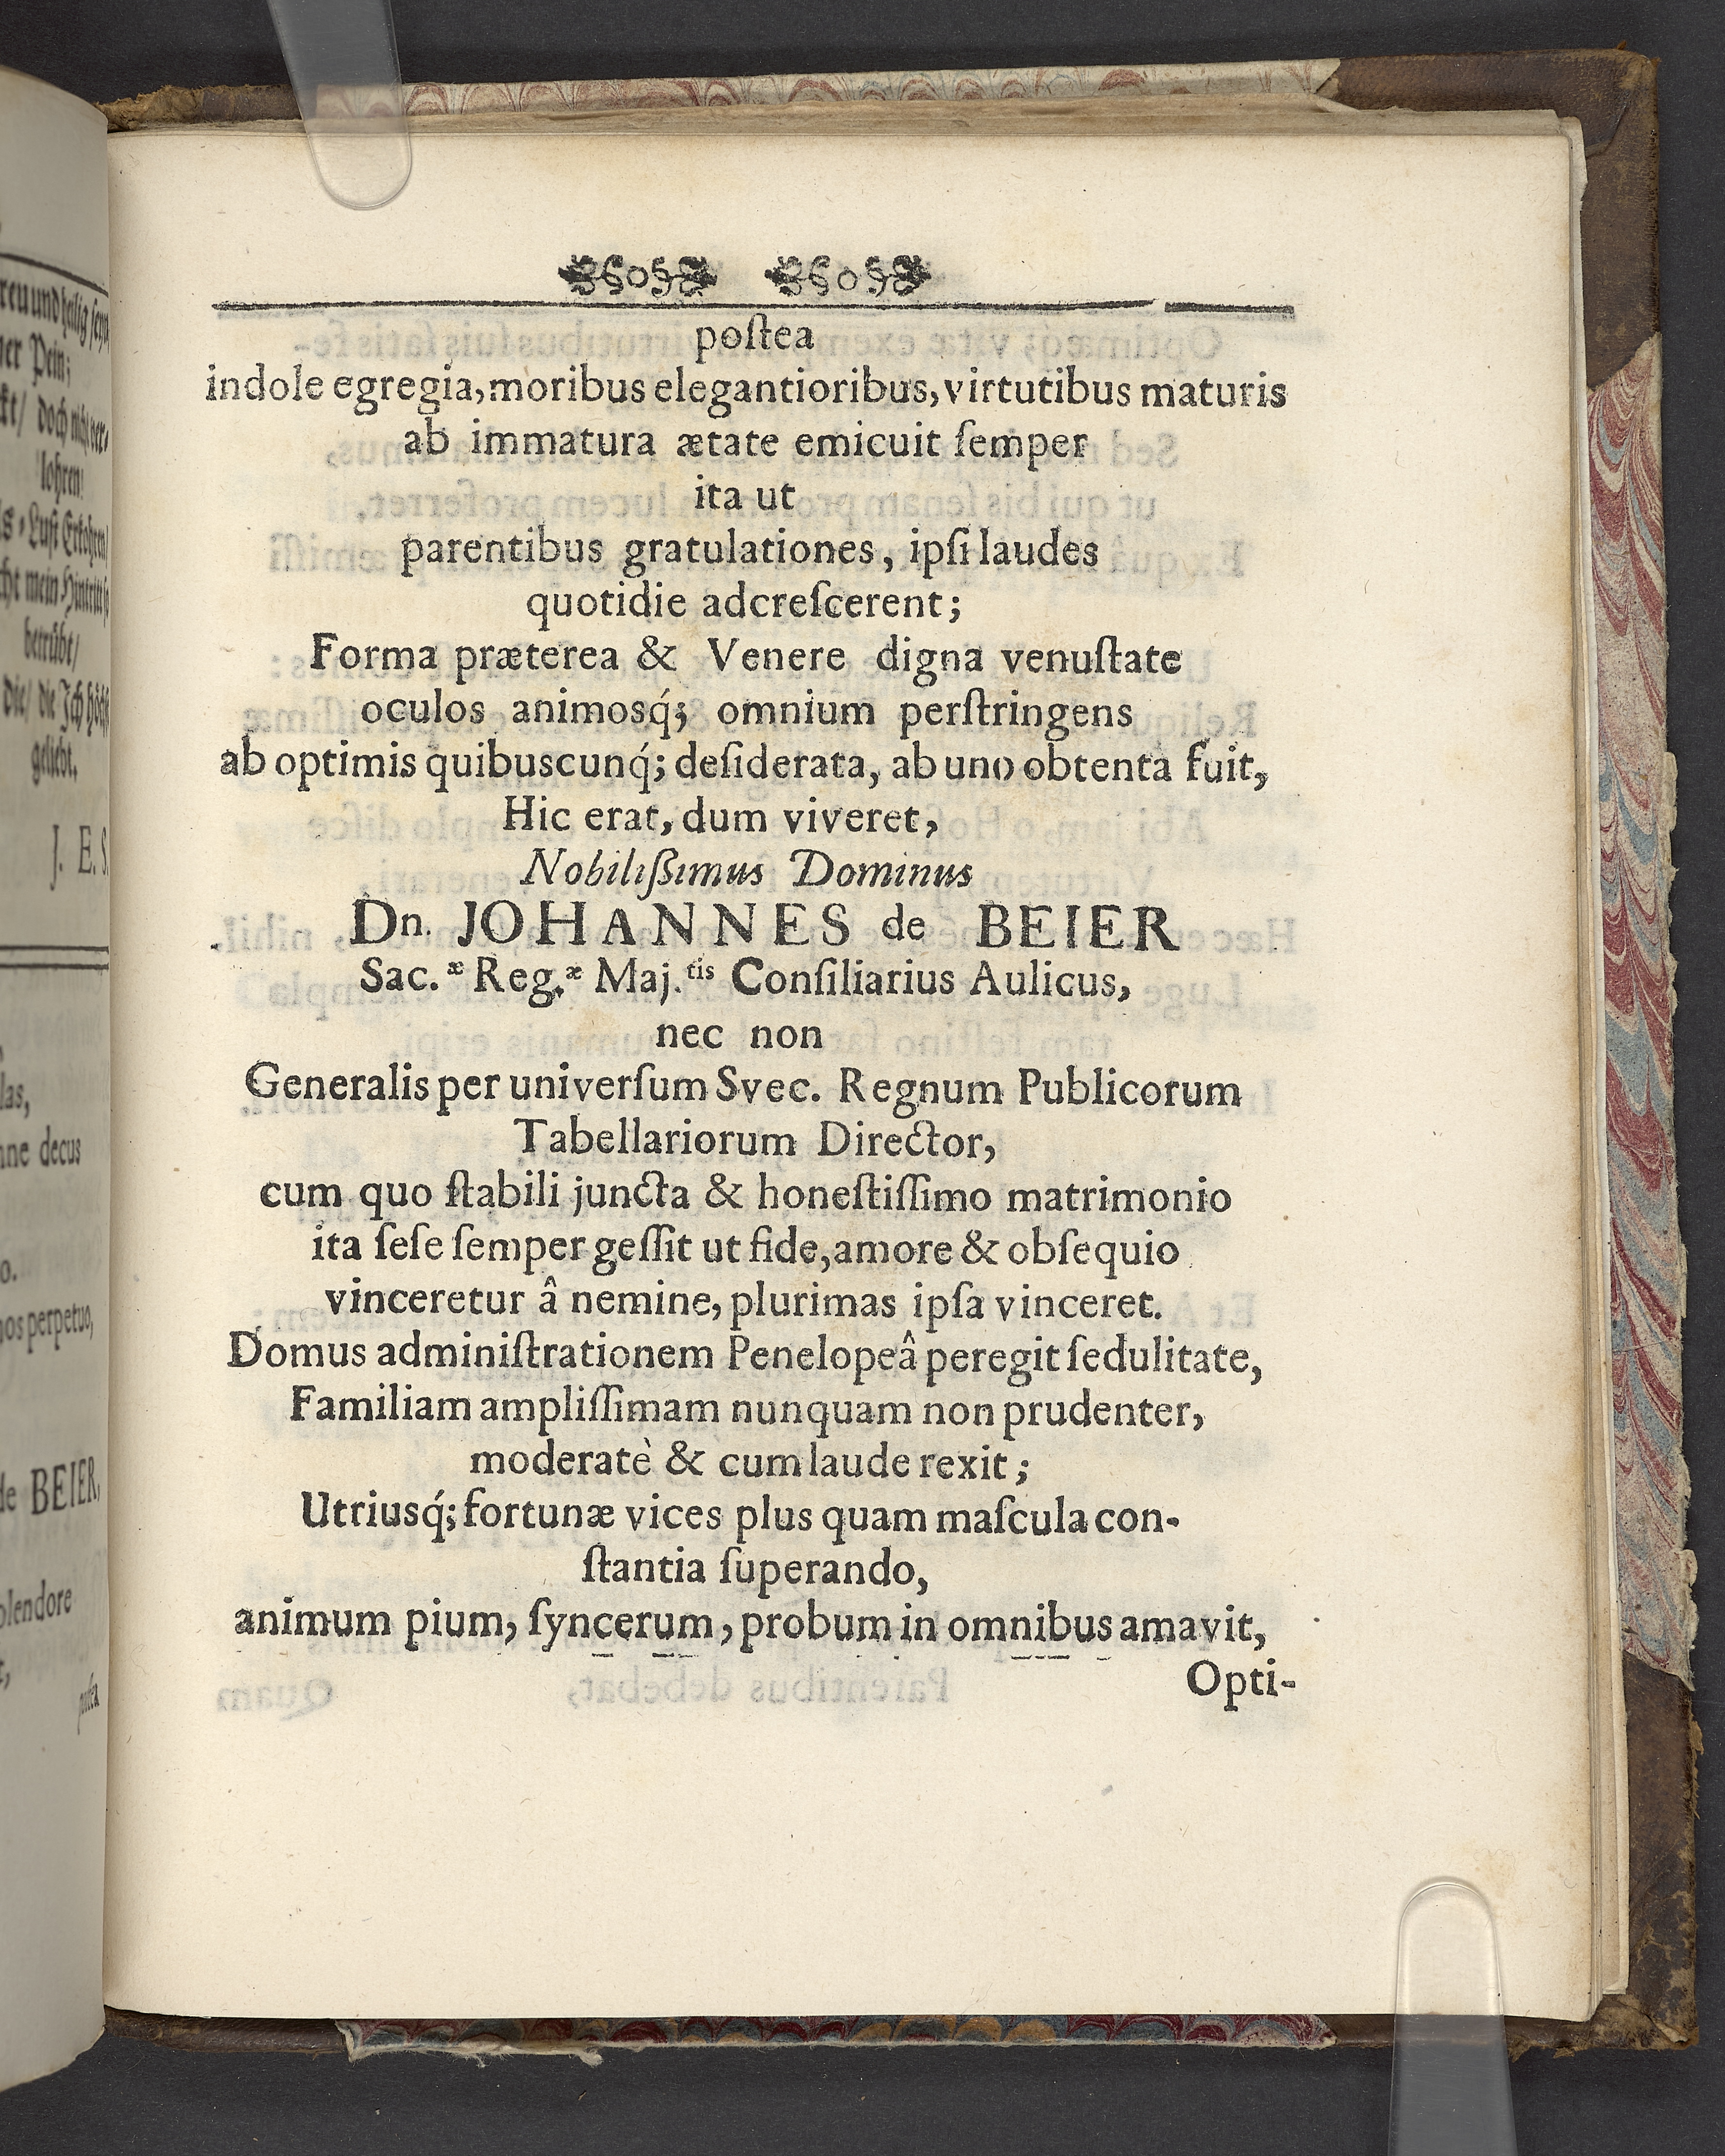 reu und heilig seyn
ner Pein;
kt/ doch nicht ver-
lohren!
s-Lust Erkohren/
cht mein Hintritt so
betrübt/
die/ die Ich höchst
geliebt.
J. E. S.
las,
nne decus
o.
nos perpetuo,
de BEIER,
plendore
postea
postea
indole egregia, moribus elegantioribus, virtutibus maturis
ab immatura ætate emicuit ſemper
ita ut
parentibus gratulationes, ipſi laudes
quotidie adcreſcerent;
Forma præterea & Venere digna venuſtate
oculos animosq́; omnium perſtringens
ab optimis quibuscunq́; deſiderata, ab uno obtenta fuit,
Hic erat, dum viveret,
Nobiliſſimus Dominus
Dn. JOHANNES de BEIER
Sac.æ Reg.æ Maj.tis Conſiliarius Aulicus,
nec non
Generalis per univerſum Svec. Regnum Publicorum
Tabellariorum Director,
cum quo ſtabili juncta & honeſtiſſimo matrimonio
ita ſeſe ſemper geſſit ut fide, amore & obſequio
vinceretur â nemine, plurimas ipſa vinceret.
Domus adminiſtrationem Penelopeâ peregit ſedulitate,
Familiam ampliſſimam nunquam non prudenter,
moderatè & cum laude rexit;
Utriusq́; fortunæ vices plus quam maſcula con-
ſtantia ſuperando,
animum pium, ſyncerum, probum in omnibus amavit,
Opti-